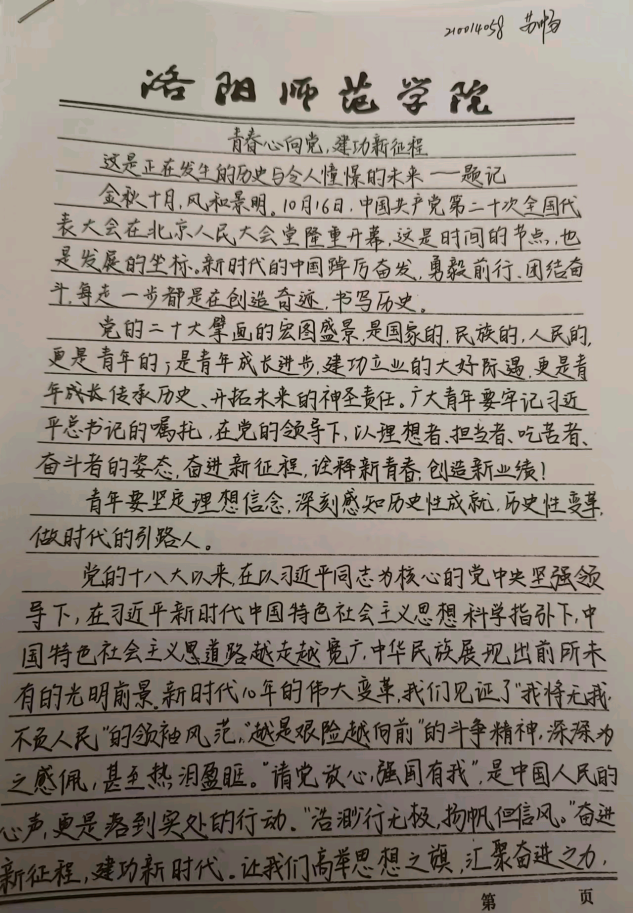 210014058 苏畅
洛阳师范学院
青春心向党,建功新征程
这是正在发生的历史与令人憧憬的未来——题记
金秋十月,风和景明。10月16日,中国共产党第二十次全国代
表大会在北京人民大会堂隆重开幕,这是时间的节点,也
是发展的坐标。新时代的中国踔厉奋发,勇毅前行、团结奋
斗,每走一步都是在创造奇迹,书写历史。
党的二十大擘画的宏图盛景,是国家的,民族的,人民的,
更是青年的;是青年成长进步,建功立业的大好际遇,更是青
年成长传承历史、开拓未来的神圣责任。广大青年要牢记习近
平总书记的嘱托,在党的领导下,以理想者、担当者、吃苦者、
奋斗者的姿态,奋进新征程,诠释新青春,创造新业绩!
青年要坚定理想信念,深刻感知历史性成就,历史性变革,
做时代的引路人。
党的十八大以来,在以习近平同志为核心的党中央坚强领
导下,在习近平新时代中国特色社会主义思想科学指引下,中
国特色社会主义思道路越走越宽广,中华民族展现出前所未
有的光明前景。新时代10年的伟大变革,我们见证了“我将无我,
不负人民”的领袖风范,“越是艰险越向前”的斗争精神,深深为
之感佩,甚至热泪盈眶。“请党放心,强国有我”,是中国人民的
心声,更是落到实处的行动。“浩渺行无极,扬帆但信风。”奋进
新征程,建功新时代。让我们高举思想之旗,汇聚奋进之力,
第 页